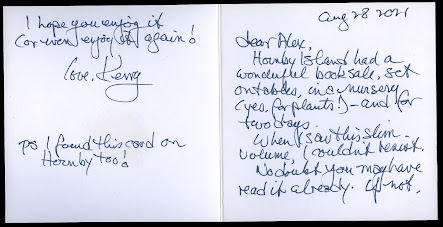 Aug 28 2021
Dear Alex,
Hornby Island had a
wonderful booksale, set
on tables, in a nursery
(yes, for plants!) - and for
two days.
When I saw this slim
volume, I couldn't resist.
No doubt you may have
read it already. If not,
I hope you enjoy it
(or even enjoy it again!
Love, Kerry
PS I found this card on
Hornby too!